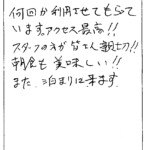 何回か利用させてもらって
います。アクセス最高!!
スタッフの方が皆さん親切!!
朝食も美味しい!!
また泊まりに来ます。